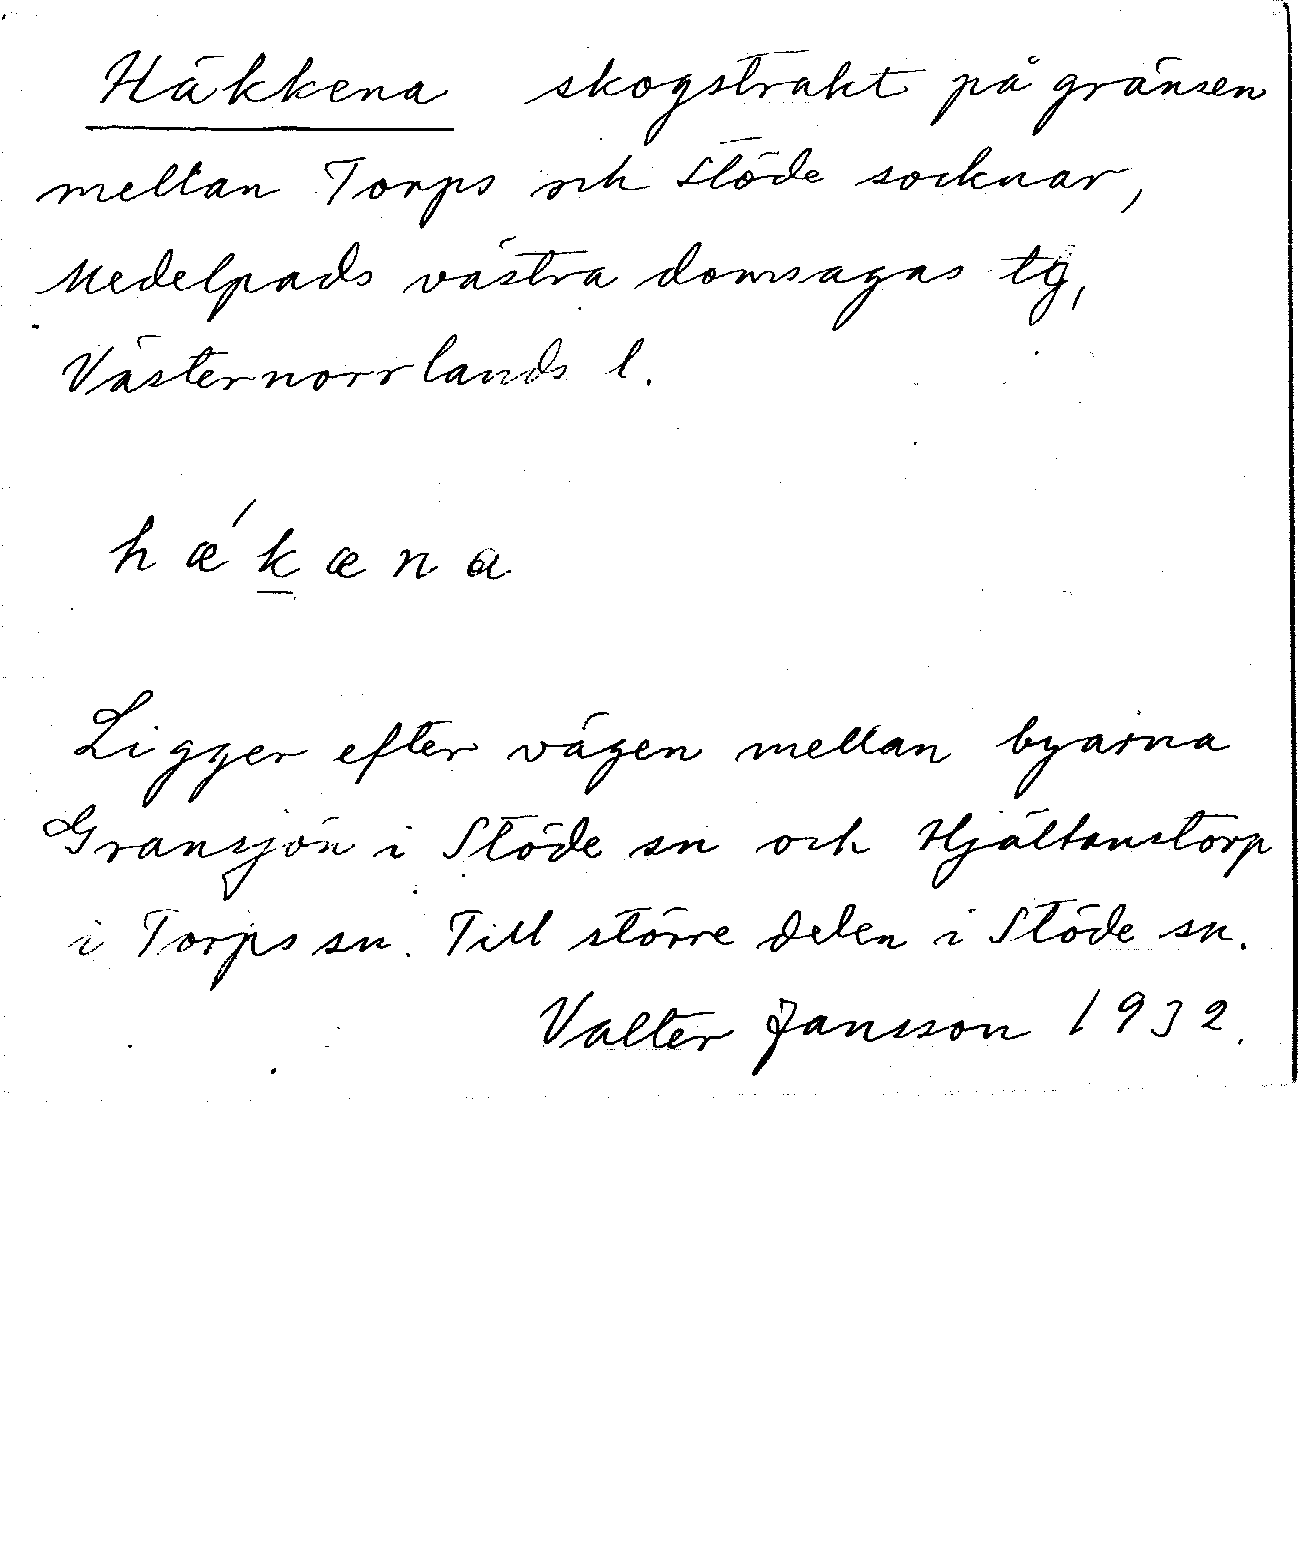 Häkkena skogstrakt på gränsen
mellan Torps och Stöde socknar,
Medelpads västra domsagas tg,
Västernorrlands l.
hǽk̲æna
Ligger efter vägen mellan byarna
Gransjön i Stöde sn och Hjältanstorp
i Torps sn. Till större delen i Stöde sn.
Valter Jansson 1932.